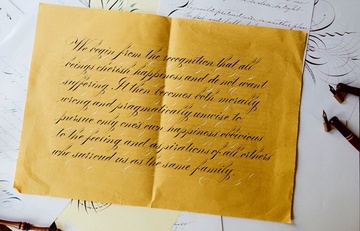 We begin from the recognition that all
beings cherish happiness and do not want
suffering. It then becomes both morally
wrong and pragmatically unwise to
pursue only one's own happiness oblivious
to the feeling and aspirations of all others
who surround us as the same family.